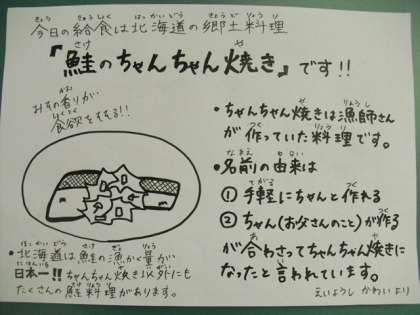 今日の給食は北海道の郷土料理
『鮭のちゃんちゃん焼き』です!!
おすの香りが
食欲をそそる!!
・ちゃんちゃん焼きは漁師さん
が作っていた料理です。
・名前の由来は
① 手軽にちゃんと作れる
② ちゃん(お父さんのこと)が作る
が合わさってちゃんちゃん焼きに
なったと言われています。
・北海道は鮭の漁かく量が
日本一!! ちゃんちゃん焼き以外にも
たくさんの鮭料理があります。
えいようし かわい より